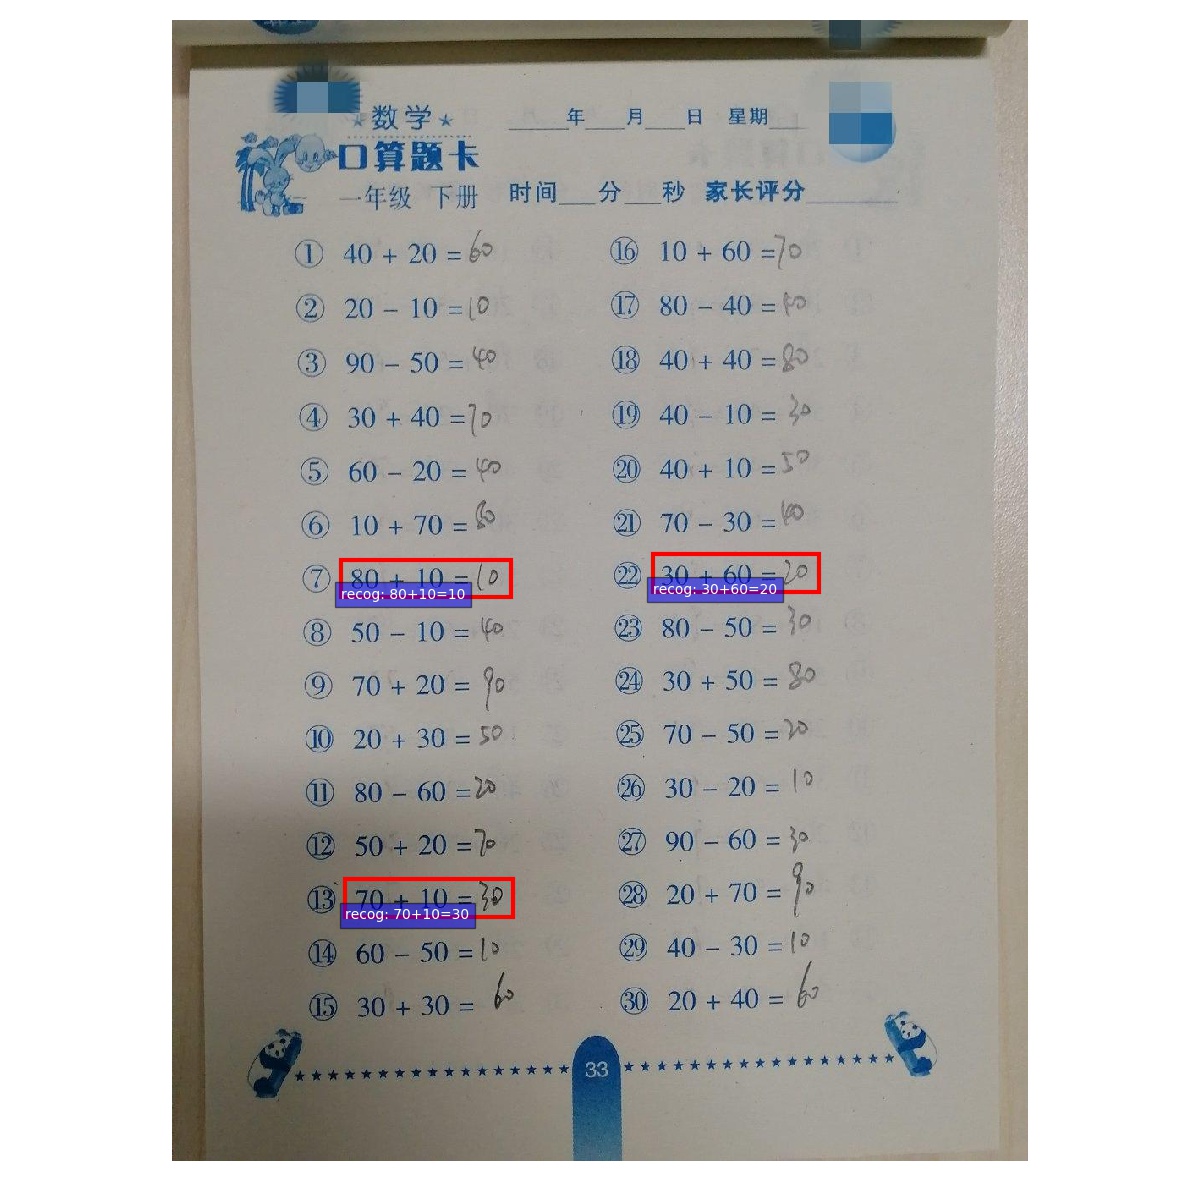 数学
口算题卡
一年级 下册
____年___月___日 星期___
时间___分___秒 家长评分________
① 40 + 20 = 60
② 20 - 10 = 10
③ 90 - 50 = 40
④ 30 + 40 = 70
⑤ 60 - 20 = 40
⑥ 10 + 70 = 80
⑦ 80 + 10 = 10
recog: 80+10=10
⑧ 50 - 10 = 40
⑨ 70 + 20 = 90
⑩ 20 + 30 = 50
⑪ 80 - 60 = 20
⑫ 50 + 20 = 70
⑬ 70 + 10 = 30
recog: 70+10=30
⑭ 60 - 50 = 10
⑮ 30 + 30 = 60
⑯ 10 + 60 = 70
⑰ 80 - 40 = 40
⑱ 40 + 40 = 80
⑲ 40 - 10 = 30
⑳ 40 + 10 = 50
㉑ 70 - 30 = 40
㉒ 30 + 60 = 20
recog: 30+60=20
㉓ 80 - 50 = 30
㉔ 30 + 50 = 80
㉕ 70 - 50 = 20
㉖ 30 - 20 = 10
㉗ 90 - 60 = 30
㉘ 20 + 70 = 90
㉙ 40 - 30 = 10
㉚ 20 + 40 = 60
33